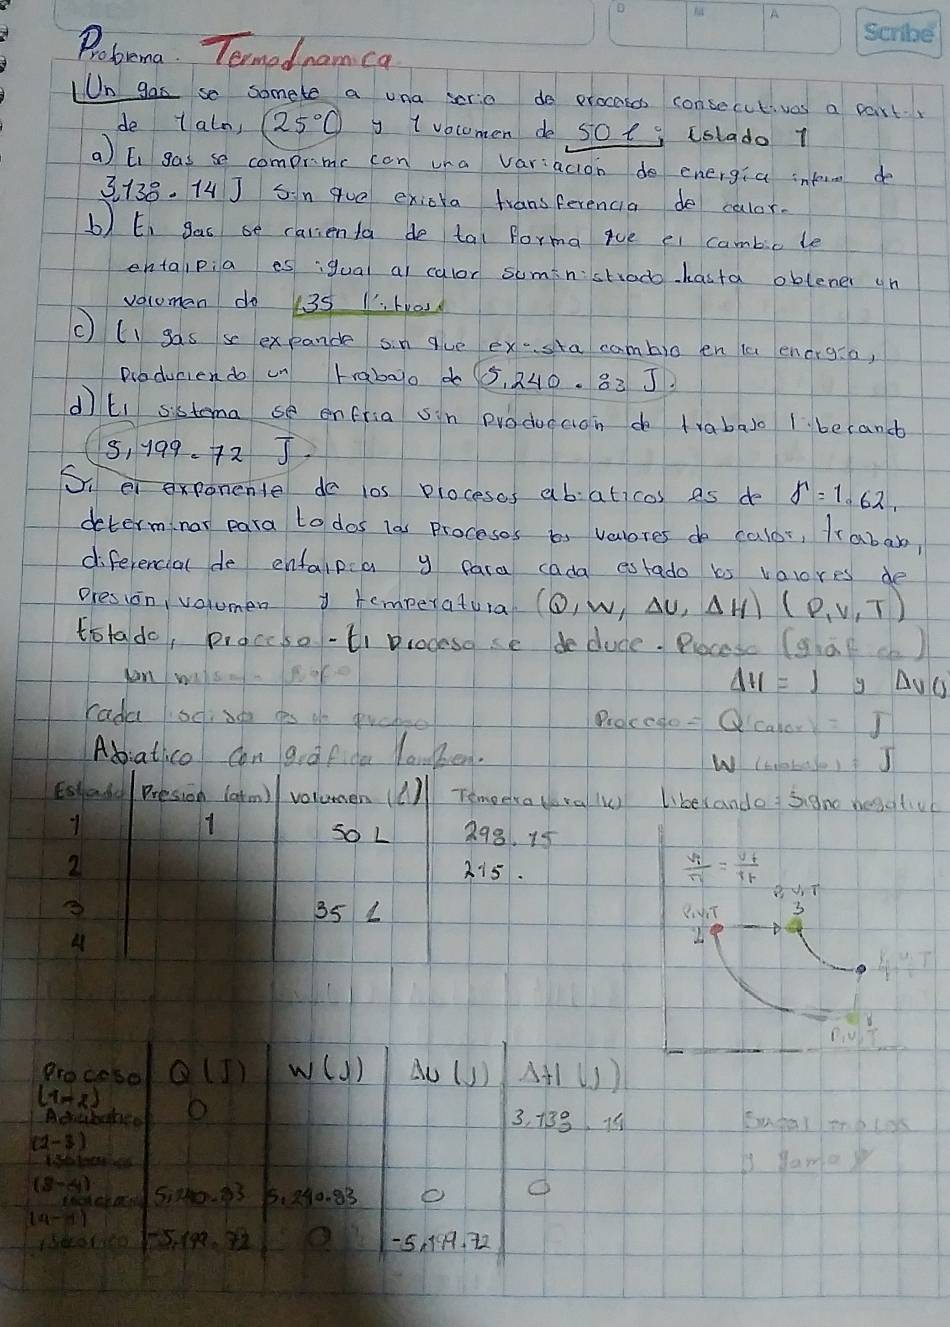 D M A
Scribe
Problema. Termodnamica
1Un gas se somete a una serie de procesos consecutivos a partir
de 1atm, 25°C y 1 volumen de 50 l; Estado 1
a) El gas se comprime con una variación de energía interna de
3,138.14 J sin que exista transferencia de calor.
b) El gas se calienta de tal forma que el cambio de
entalpia es igual al calor suministrado hasta obtener un
volumen de 35 litros.
c) El gas se expande sin que exista cambio en la energía,
produciendo un trabajo de 5,240.83 J.
d) El sistema se enfria sin producción de trabajo liberando
5,199.72 J.
Si el exponente de los procesos abiaticos es de γ=1.62,
determinar para todos los procesos los valores de calor, trabajo,
diferencial de entalpia y para cada estado los valores de
presion, volumen y temperatura (Q, W, ΔU, ΔH) (P,V,T)
Estado, proceso - El proceso se deduce. Proceso (grafica)
un
ΔH = J y ΔU()
cada es
Proceso = Q(calor) = J
Abiatico con grafica tambien.
W (trabajo) = J
Estado Presión (atm) volumen (L) Temperatura (K) liberando = signo negativo
1 1 50 L 298.15
2 215.
3 35 L
4
P,V,T
3
P,V,T
2
P,V,T
P,V,T
Proceso Q(J) W(J) ΔU(J) ΔH(J)
(1-2)
Adiabatico 0 3,138.14
(2-3)
isobarico
(3-4)
5,240.83 5,240.83 0 0
(4-1)
isocorico -5,199.72 0 -5,199.72
y gama γ